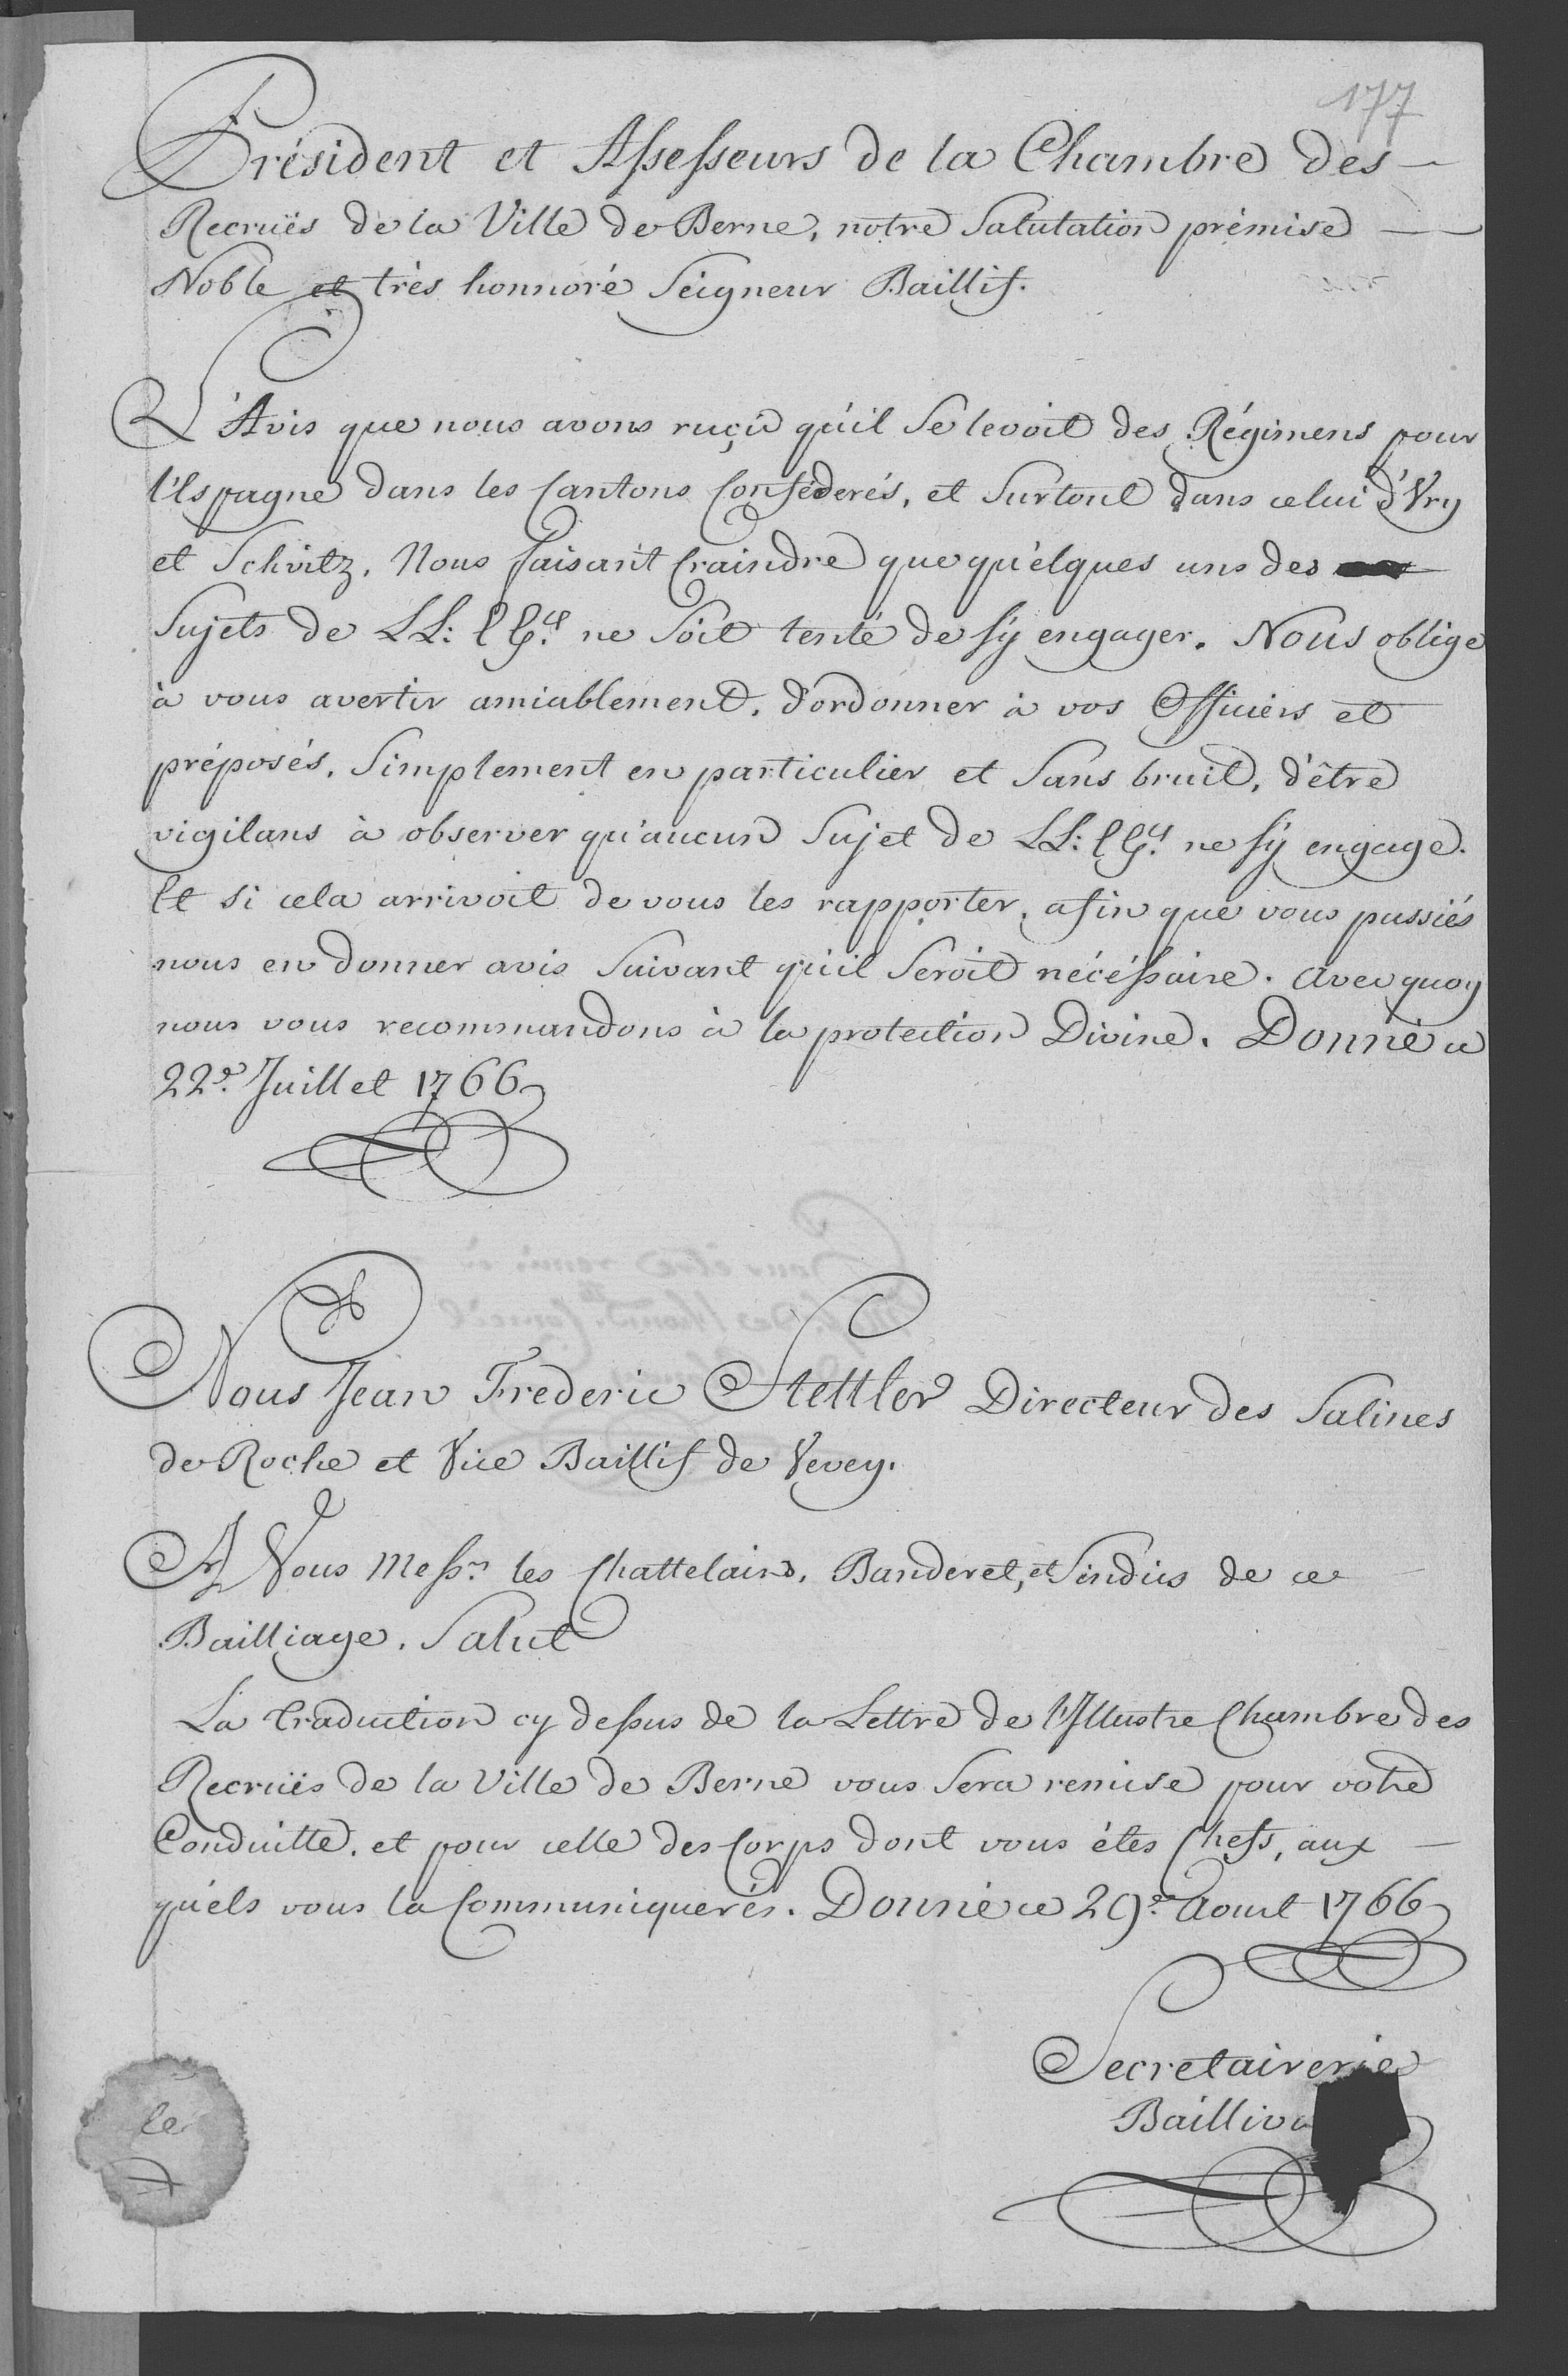 177
Président et Assesseurs de la Chambre des
Recruës de la Ville de Berne, notre Salutation prémise
Noble et très honnoré Seigneur Baillif.
L'Avis que nous avons ruçû qu'il Se levoit des Régimens pour
l'Espagne dans les Cantons Conféderés, et Surtout dans celui d'Vry
et Schvitz. Nous faisant Craindre que quélques uns des
Sujets de LL: EE.ces ne Soit tenté de Sÿ engager. Nous oblige
à vous avertir amiablement, d'ordonner à vos Officiers et
préposés, Simplement en particulier et Sans bruit, d'être
vigilans à observer qu'aucun Sujet de LL: EE.ces ne Sÿ engage.
Et si cela arrivoit de vous les rapporter, afin que vous pussiés
nous en donner avis Suivant qu'il Seroit nécéssaire. Avec quoy
nous vous recommandons à la protection Divine. Donné ce
22e. Juillet 1766
Nous Jean Frederic Stettler Directeur des Salines
de Roche et Vice Baillif de Vevey.
A Vous Messrs. les Chattelains, Banderet, et Sindics de ce
Bailliage. Salut
La traduction cy dessus de la Lettre de l'Illustre Chambre des
Recruës de la Ville de Berne vous Sera remise pour votre
Conduitte, et pour celle des Corps dont vous étes Chefs, aux
quéls vous la Communiquerés. Donné ce 29e. Aoust 1766
Secretairerie
Bailliva
le